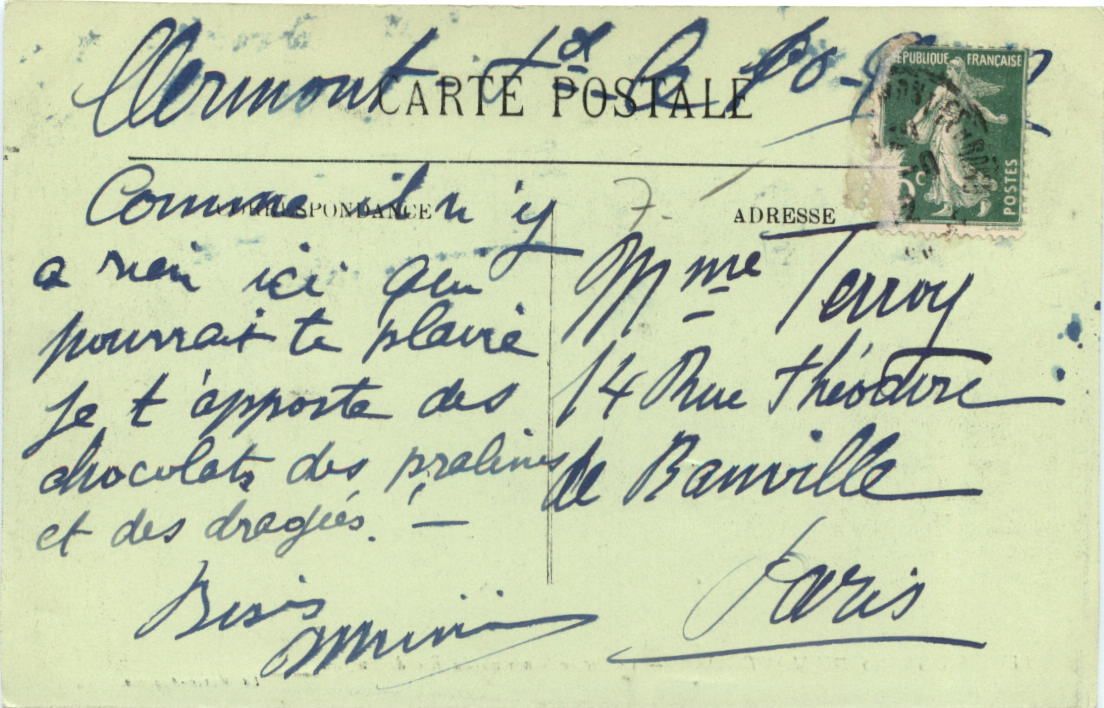 Clermont Fd le
CARTE POSTALE
RÉPUBLIQUE FRANÇAISE
POSTES
CORRESPONDANCE
ADRESSE
Comme il n'y
a rien ici qui
pourrait te plaire
je t'apporte des
chocolats, des pralines
et des dragées. —
Bises
7.
Mme Terroy
14 Rue Théodore
de Banville
Paris